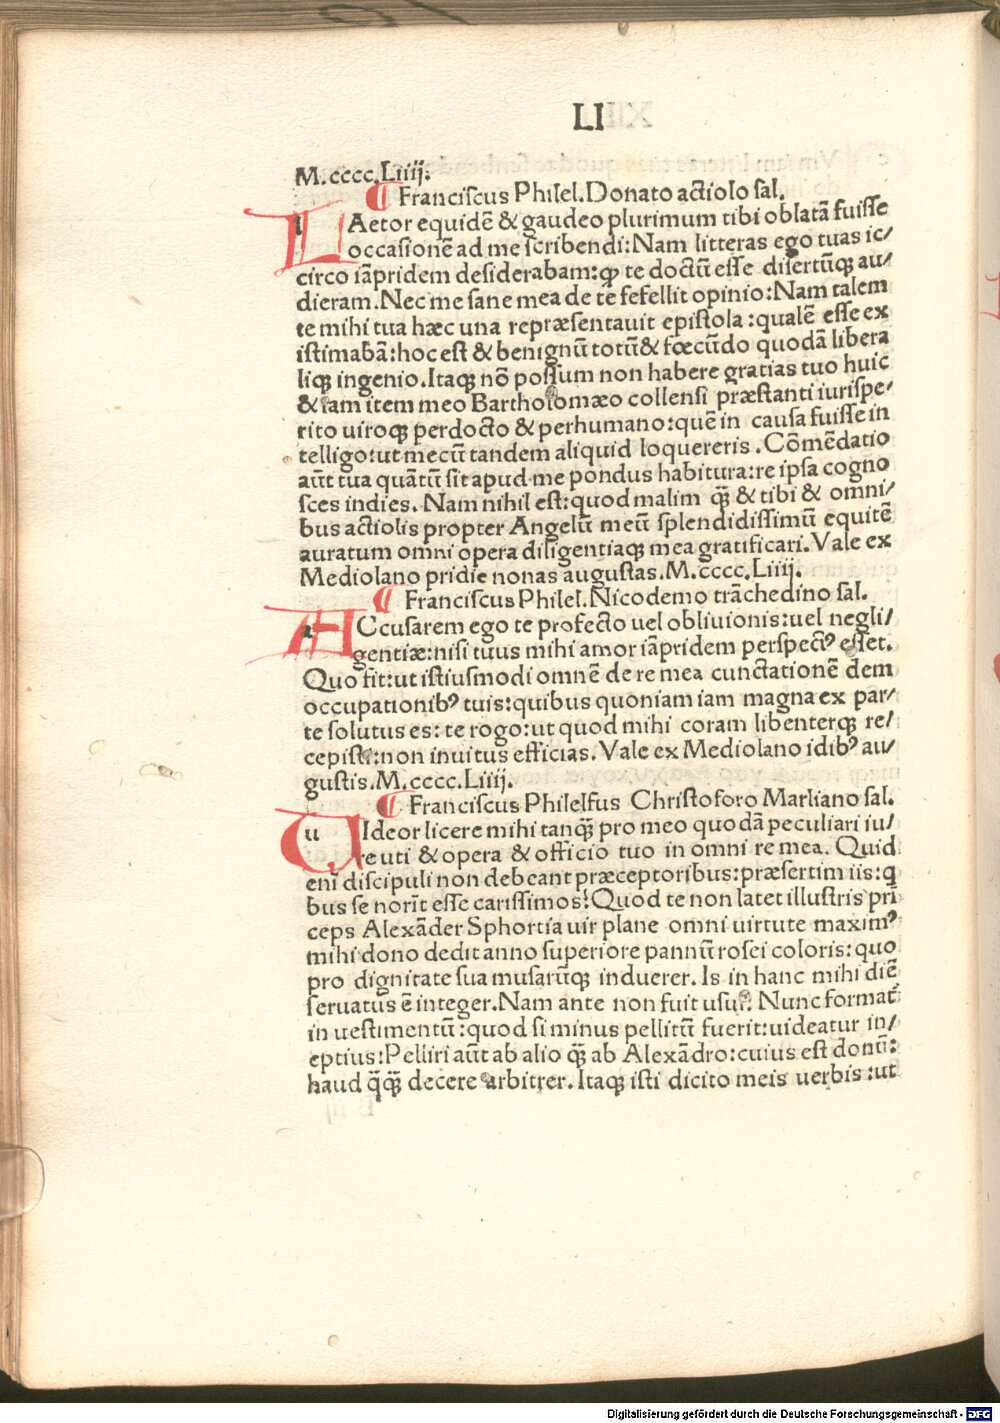 LI
M.cccc.Liiij.
¶ Franciscus Philel. Donato actiolo sal.
LAetor equidē & gaudeo plurimum tibi oblatā fuisse
occasionē ad me scribendi: Nam litteras ego tuas ic/
circo iāpridem desiderabam: ꝙ te doctū esse disertūqꝫ au/
dieram. Nec me sane mea de te fefellit opinio: Nam talem
te mihi tua hæc una repræsentauit epistola: qualē esse ex
istimabā: hoc est & benignū totū & fœcūdo quodā libera
liqꝫ ingenio. Itaqꝫ nō possum non habere gratias tuo huic
& iam item meo Bartholomæo collensi præstanti iurispe/
rito uiroqꝫ perdocto & perhumano: quē in causa fuisse in
telligo: ut mecū tandem aliquid loquereris. Cōmēdatio
aūt tua quātū sit apud me pondus habitura: re ipsa cogno
sces indies. Nam nihil est: quod malim qꝫ̄ & tibi & omni/
bus actiolis propter Angelū meū splendidissimū equitē
auratum omni opera diligentiaqꝫ mea gratificari. Vale ex
Mediolano pridie nonas augustas. M.cccc.Liiij.
¶ Franciscus Philel. Nicodemo trāchedino sal.
ACcusarem ego te profecto uel obliuionis: uel negli/
gentiæ: nisi tuus mihi amor iāpridem perspectꝰ esset.
Quo fit: ut istiusmodi omnē de re mea cunctationē dem
occupationibꝰ tuis: quibus quoniam iam magna ex par/
te solutus es: te rogo: ut quod mihi coram libenterqꝫ re/
cepisti: non inuitus efficias. Vale ex Mediolano idibꝰ au/
gustis. M.cccc.Liiij.
¶ Franciscus Philelfus Christoforo Marliano sal.
UIdeor licere mihi tanqꝫ̄ pro meo quodā peculiari iu/
re uti & opera & officio tuo in omni re mea. Quid
enī discipuli non debeant præceptoribus: præsertim iis: q
bus se norīt esse carissimos! Quod te non latet illustris prī
ceps Alexāder Sphortia uir plane omni uirtute maximꝰ
mihi dono dedit anno superiore pannū rosei coloris: quo
pro dignitate sua musarūqꝫ induerer. Is in hanc mihi diē
seruatus ē integer. Nam ante non fuit usui. Nunc format᷒
in uestimentū: quod si minus pellitū fuerit: uideatur in/
eptius: Pelliri aūt ab alio qꝫ̄ ab Alexādro: cuius est donū:
haud q̄qꝫ̄ decere arbitrer. Itaqꝫ isti dicito meis uerbis: ut
Digitalisierung gefördert durch die Deutsche Forschungsgemeinschaft - DFG